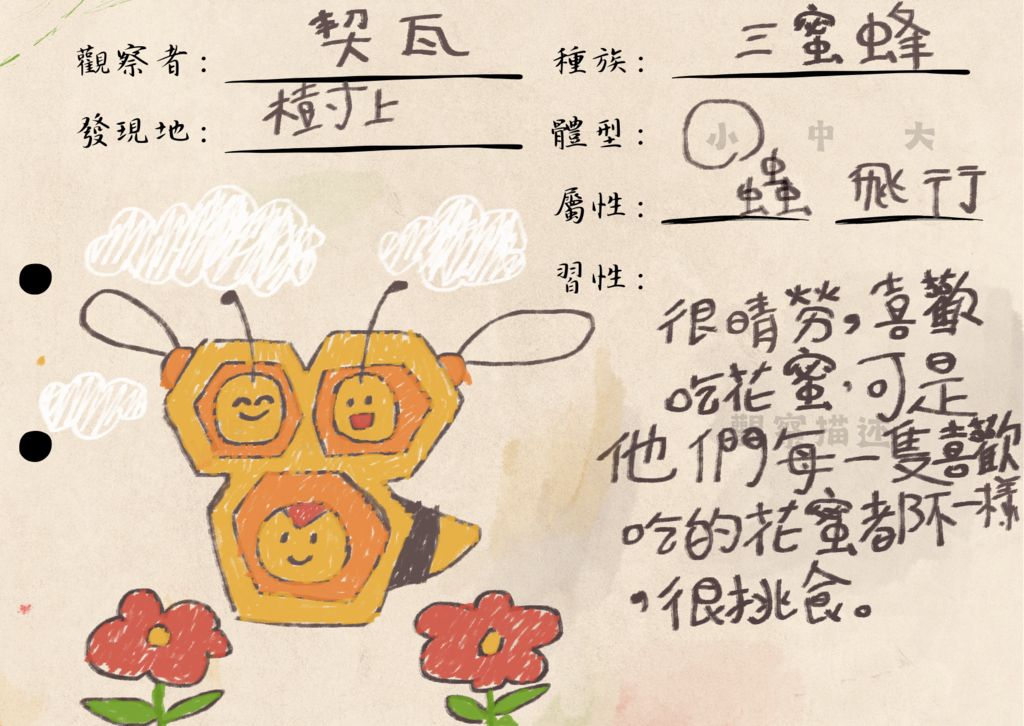 觀察者：契瓦
種族：三蜜蜂
發現地：樹上
體型：小 中 大
屬性：蟲 飛行
習性：
很晴勞，喜歡
吃花蜜，可是
觀察描述
他們每一隻喜歡
吃的花蜜都不一樣
，很挑食。